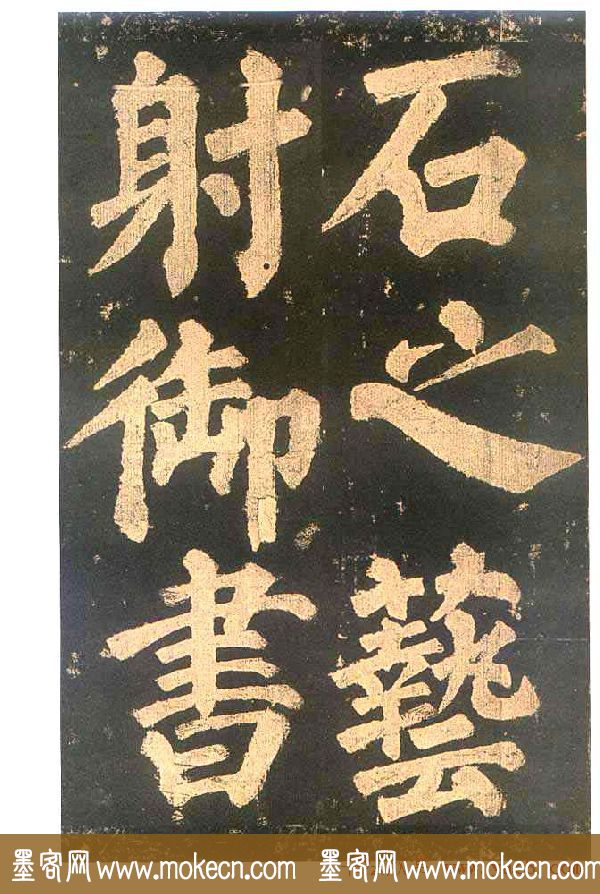 石之藝
射御書
墨客网 www.mokecn.com 墨客网 www.mokecn.com